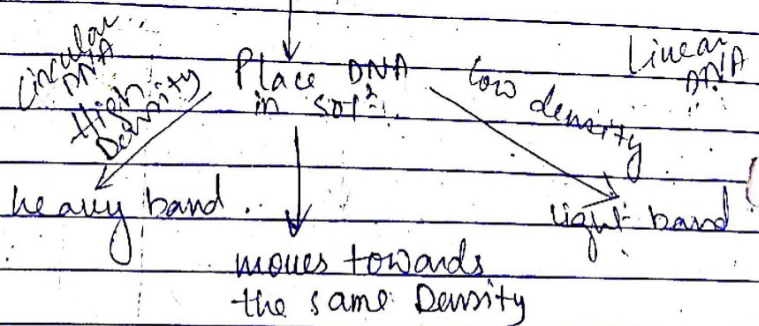 Circular
DNA
High
Density
Place DNA
in solⁿ.
low density
Linear
DNA
heavy band.
light band
moves towards
the same Density